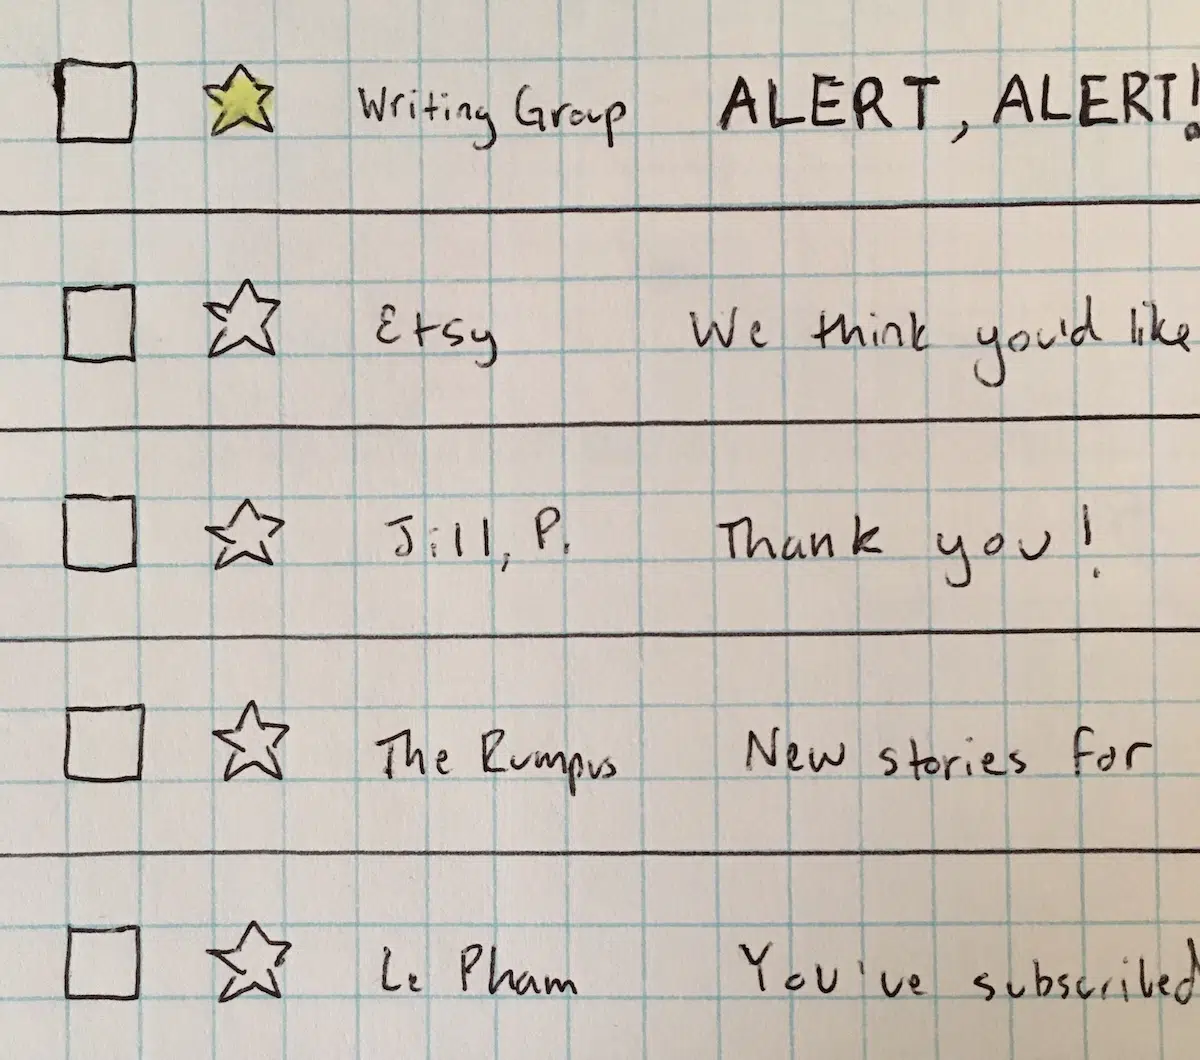 Writing Group ALERT, ALERT!
Etsy We think you'd like
Jill, P. Thank you!
The Rumpus New stories for
Le Pham You've subscribed